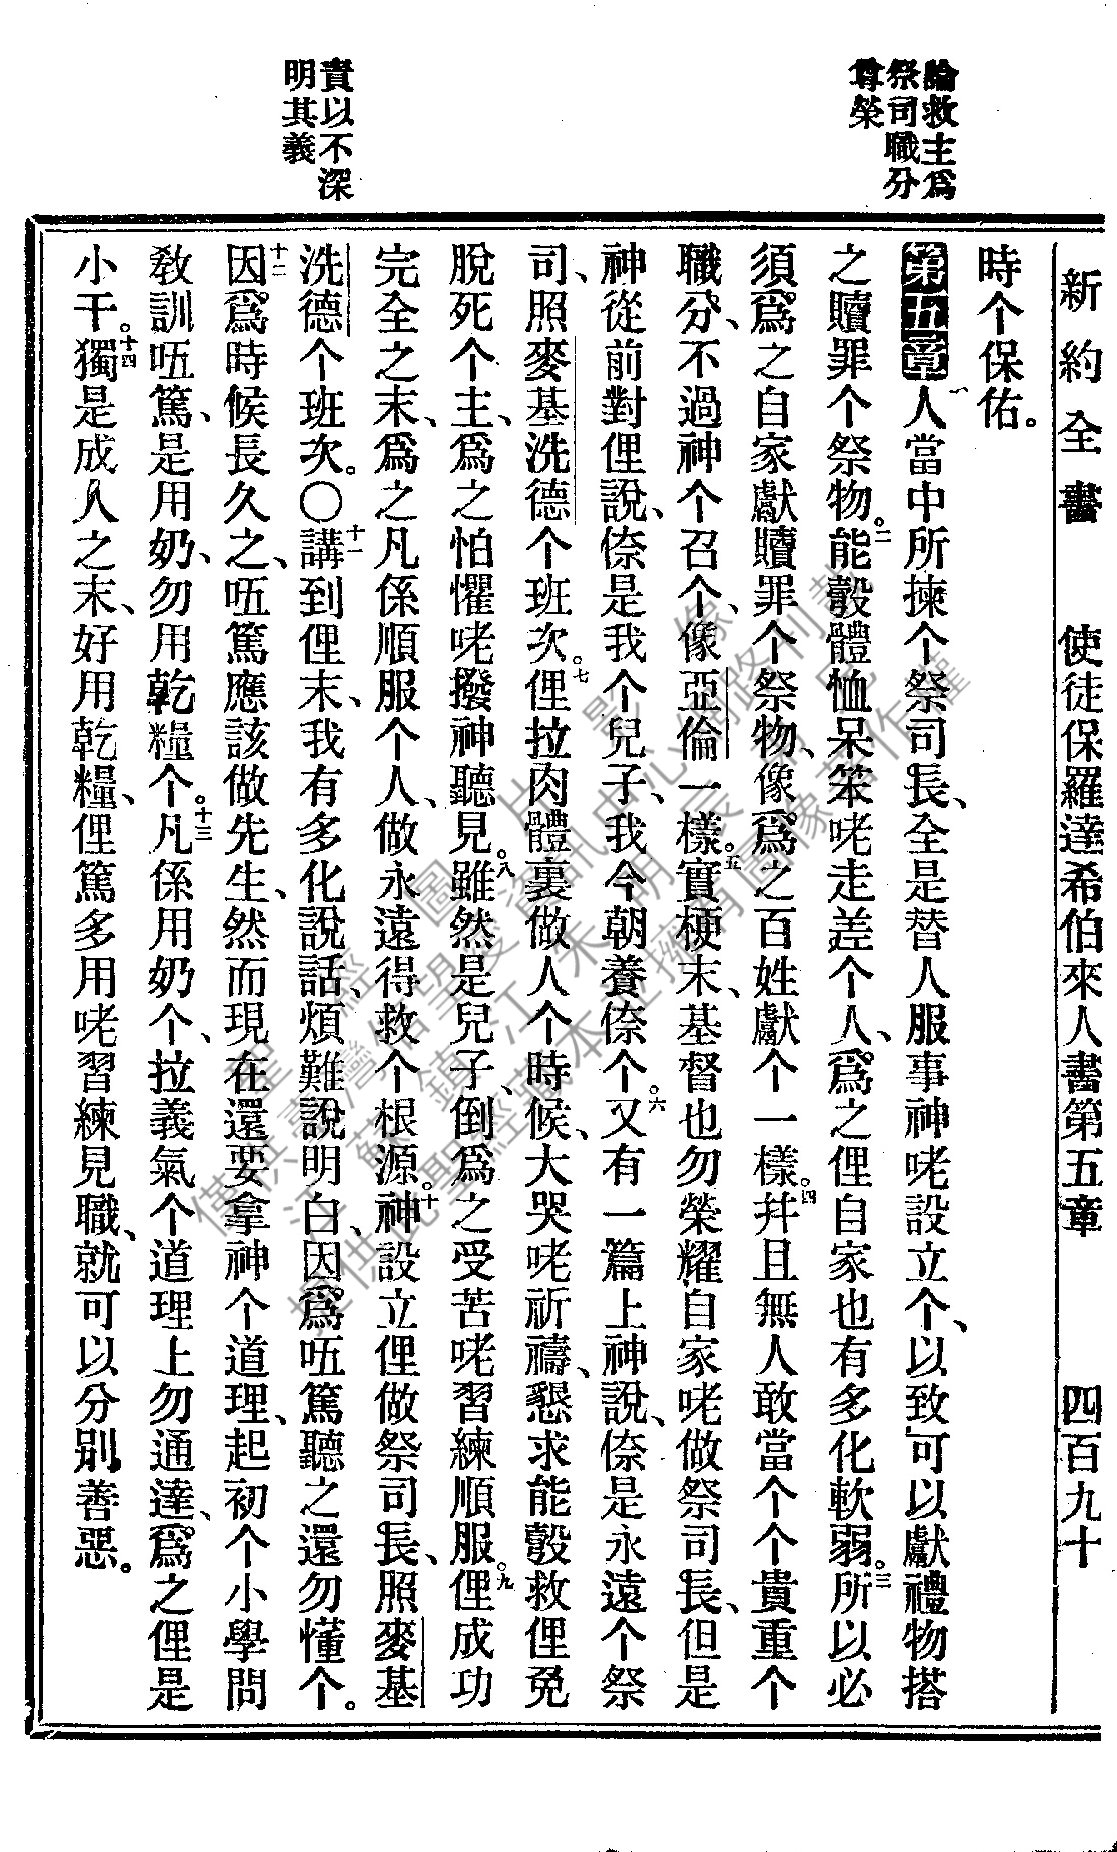 新約全書 使徒保羅達希伯來人書第五章 四百九十
論救主爲
祭司職分
尊榮
責以不深
明其義
時个保佑。
第五章 一人當中所揀个祭司長、全是替人服事神咾設立个、以致可以獻禮物搭
之贖罪个祭物。二能彀體恤呆笨咾走差个人、爲之俚自家也有多化軟弱。三所以必
須爲之自家獻贖罪个祭物、像爲之百姓獻个一樣。四幷且無人敢當个个貴重个
職分、不過神个召个、像亞倫一樣。五實梗末、基督也勿榮耀自家咾做祭司長、但是
神從前對俚說、倷是我个兒子、我今朝養倷个。六又有一篇上神說、倷是永遠个祭
司、照麥基洗德个班次。七俚拉肉體裏做人个時候、大哭咾祈禱、懇求能彀救俚免
脫死个主、爲之怕懼咾撥神聽見。八雖然是兒子、倒爲之受苦咾習練順服。九俚成功
完全之末、爲之凡係順服个人、做永遠得救个根源。十神設立俚做祭司長、照麥基
洗德个班次。〇十一講到俚末、我有多化說話、煩難說明白、因爲㕶篤聽之還勿懂个。
十二因爲時候長久之、㕶篤應該做先生、然而現在還要拿神个道理、起初个小學問
教訓㕶篤、是用奶、勿用乾糧个。十三凡係用奶个、拉義氣个道理上勿通達、爲之俚是
小干。十四獨是成人之末、好用乾糧、俚篤多用咾習練見職、就可以分別善惡。